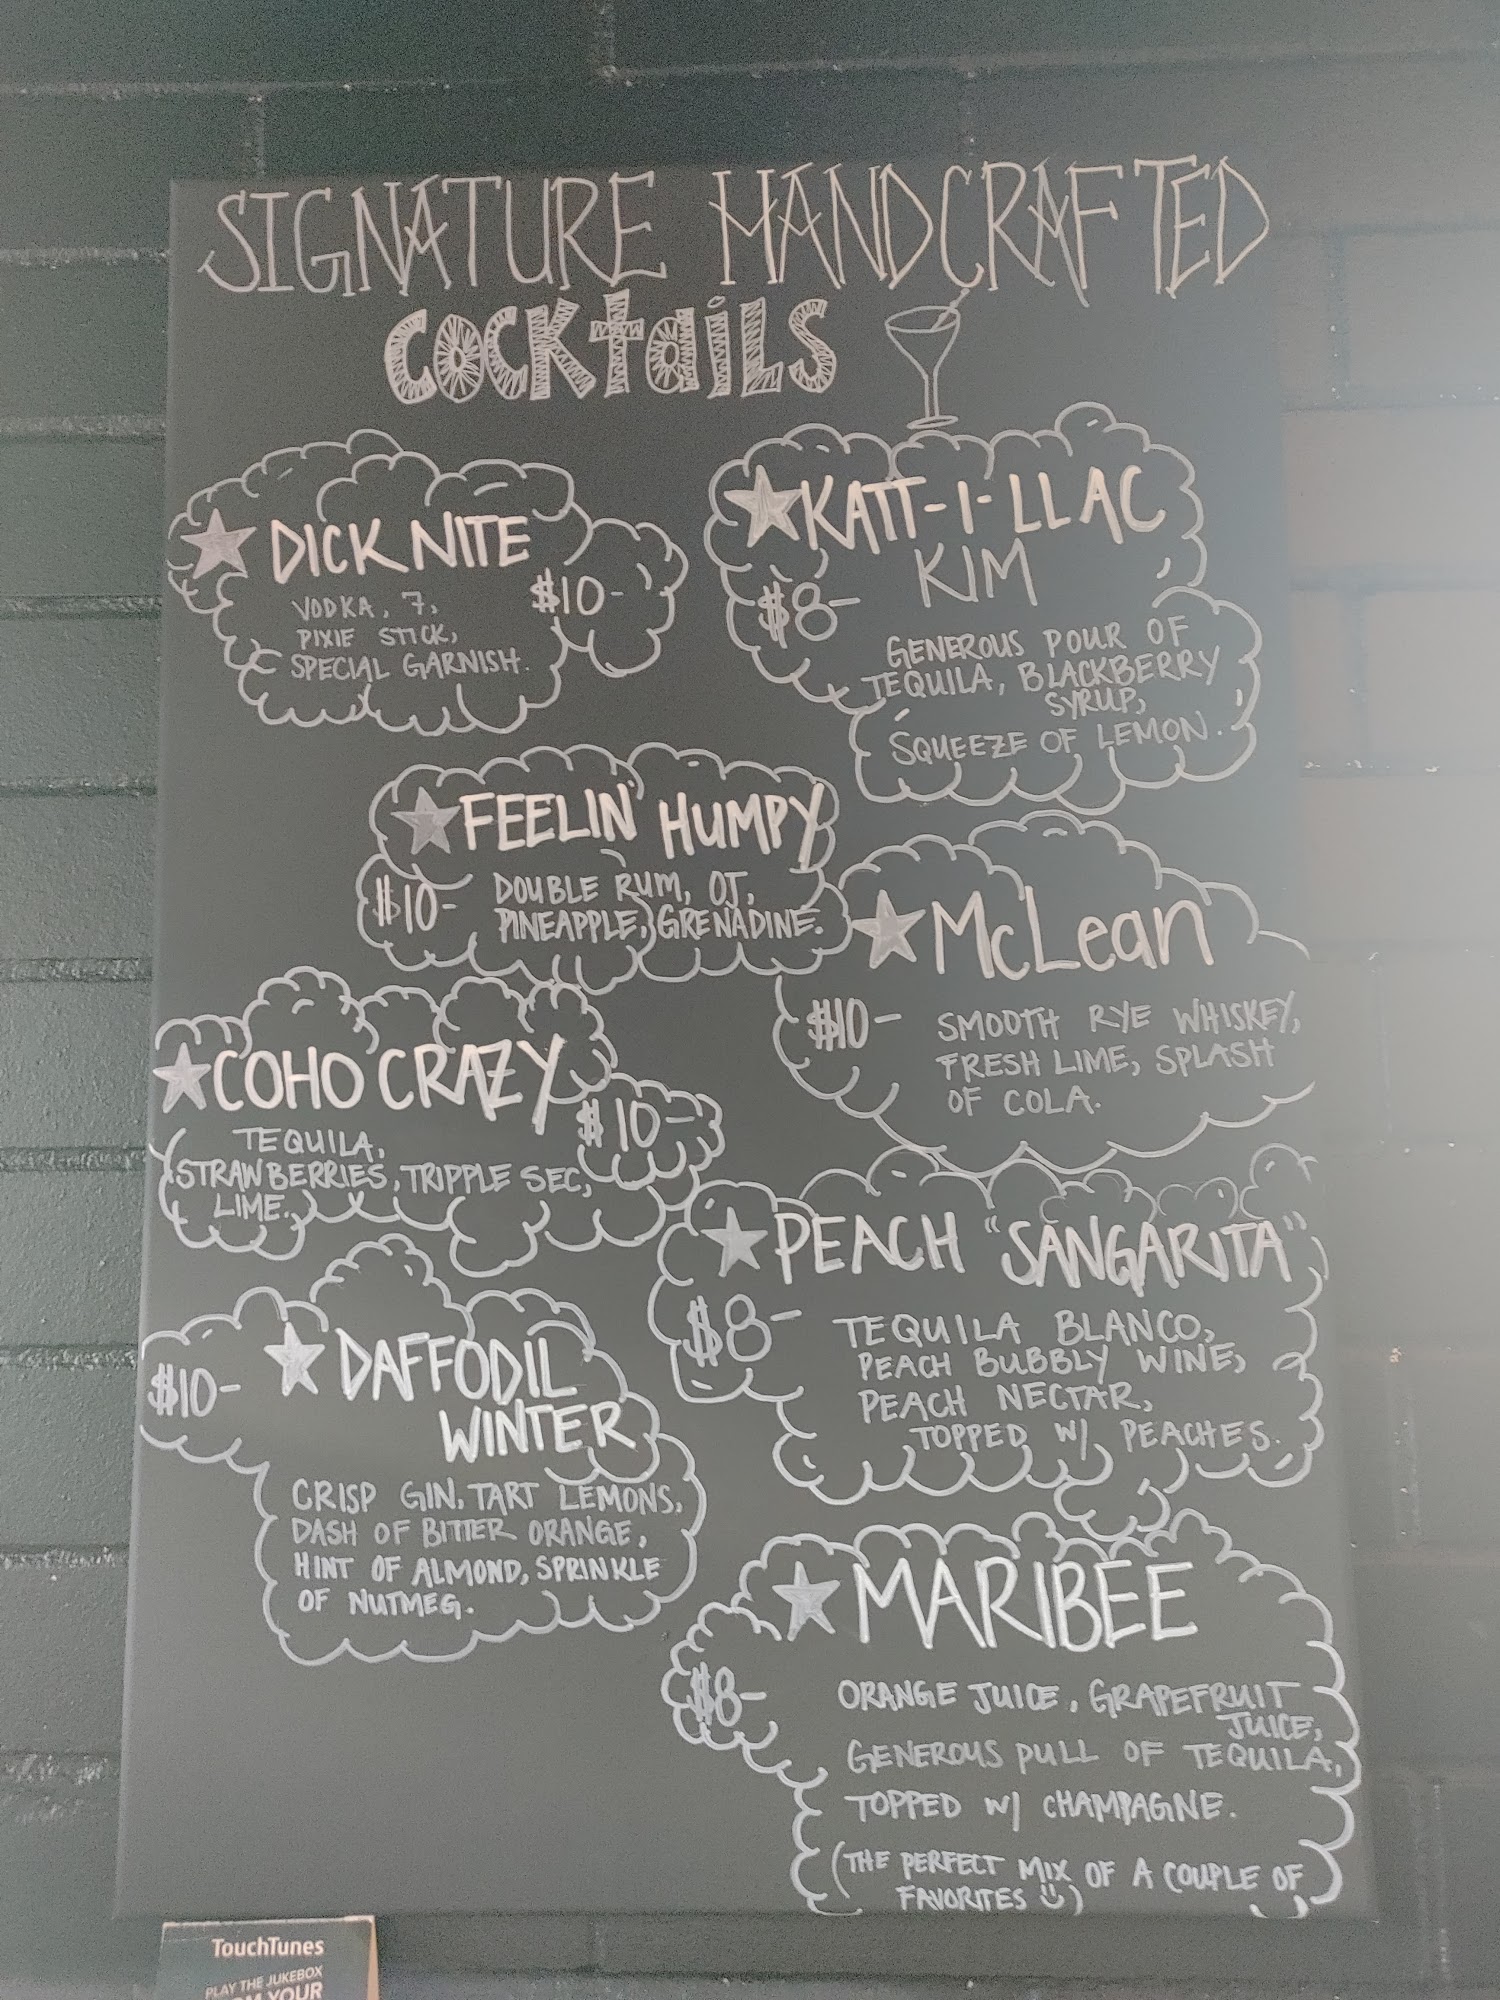 SIGNATURE HANDCRAFTED
COCKTAILS
DICK NITE
$10-
VODKA, 7,
PIXIE STICK,
SPECIAL GARNISH.
KATT-I-LLAC
KIM
$8-
GENEROUS POUR OF
TEQUILA, BLACKBERRY
SYRUP,
SQUEEZE OF LEMON.
FEELIN' HUMPY
$10-
DOUBLE RUM, OJ,
PINEAPPLE, GRENADINE.
McLean
$10-
SMOOTH RYE WHISKEY,
FRESH LIME, SPLASH
OF COLA.
COHO CRAZY
$10-
TEQUILA,
STRAWBERRIES, TRIPPLE SEC,
LIME.
PEACH "SANGARITA"
$8-
TEQUILA BLANCO,
PEACH BUBBLY WINE,
PEACH NECTAR,
TOPPED W/ PEACHES.
DAFFODIL
WINTER
$10-
CRISP GIN, TART LEMONS,
DASH OF BITTER ORANGE,
HINT OF ALMOND, SPRINKLE
OF NUTMEG.
MARIBEE
$8-
ORANGE JUICE, GRAPEFRUIT
JUICE,
GENEROUS PULL OF TEQUILA,
TOPPED W/ CHAMPAGNE.
(THE PERFECT MIX OF A COUPLE OF
FAVORITES ☺)
TouchTunes
PLAY THE JUKEBOX
YOUR